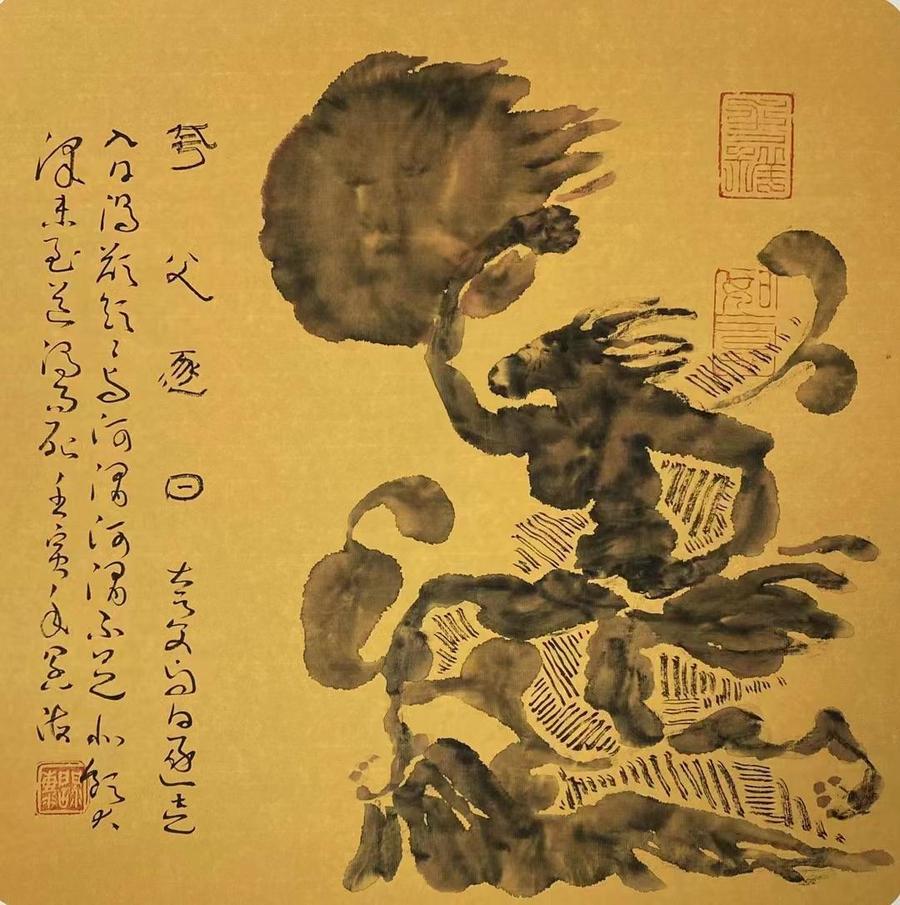 夸父逐日 夸父与日逐走
入日渴欲飲〻于河渭河渭不足北飲大
澤未至道渴而死 壬寅年